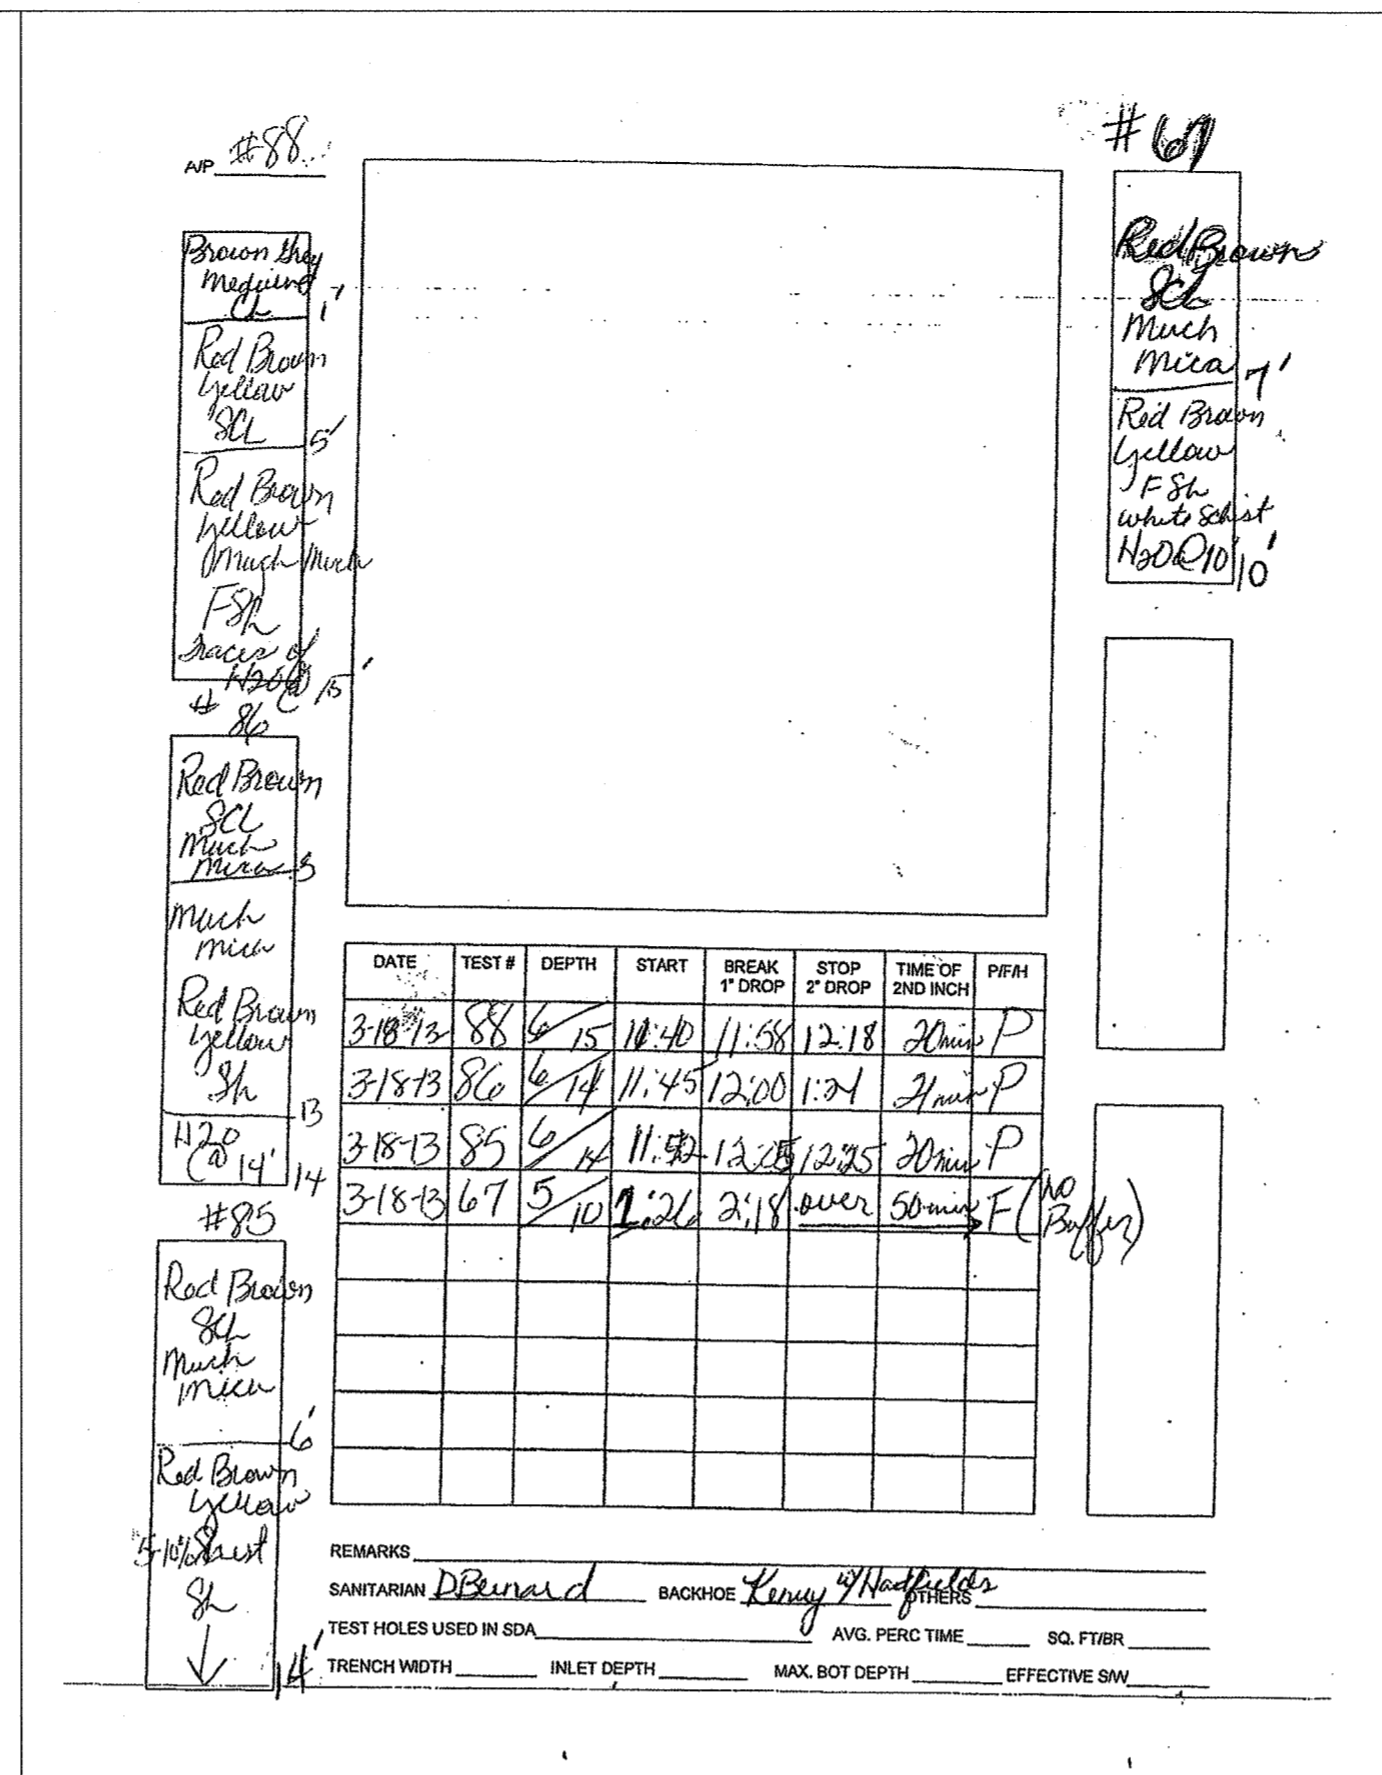 A/P #88
Brown Grey
Medium
CL 1'
Red Brown
Yellow
SCL 5'
Red Brown
Yellow
Much
FSL
Traces of
H2O @ 15'
# 86
Red Brown
SCL
Much
Mica 3
Much
mica
Red Brown
Yellow
SL
13
H20
@ 14' 14
#85
Red Brown
SCL
Much
mica
6'
Red Brown
Yellow
5-10%
SL
14'
#67
Red Brown
SCL
Much
Mica 7'
Red Brown
Yellow
FSL
white Schist
H2O@10' 10'
DATE TEST # DEPTH START BREAK 1" DROP STOP 2" DROP TIME OF 2ND INCH P/F/H
3-18-13 88 6/15 11:40 11:58 12:18 20min P
3-18-13 86 6/14 11:45 12:00 21min P
3-18-13 85 6/14 11:52 12:05 12:25 20min P
3-18-13 67 5/10 1:26 2:18 over 50-min F (No Buffer)
REMARKS
SANITARIAN D Bernard BACKHOE Kenny w/ Hadfields OTHERS
TEST HOLES USED IN SDA AVG. PERC TIME SQ. FT/BR
TRENCH WIDTH INLET DEPTH MAX. BOT DEPTH EFFECTIVE S/W